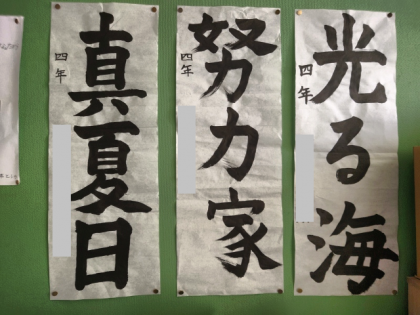 光る海
四年
努力家
四年
真夏日
四年